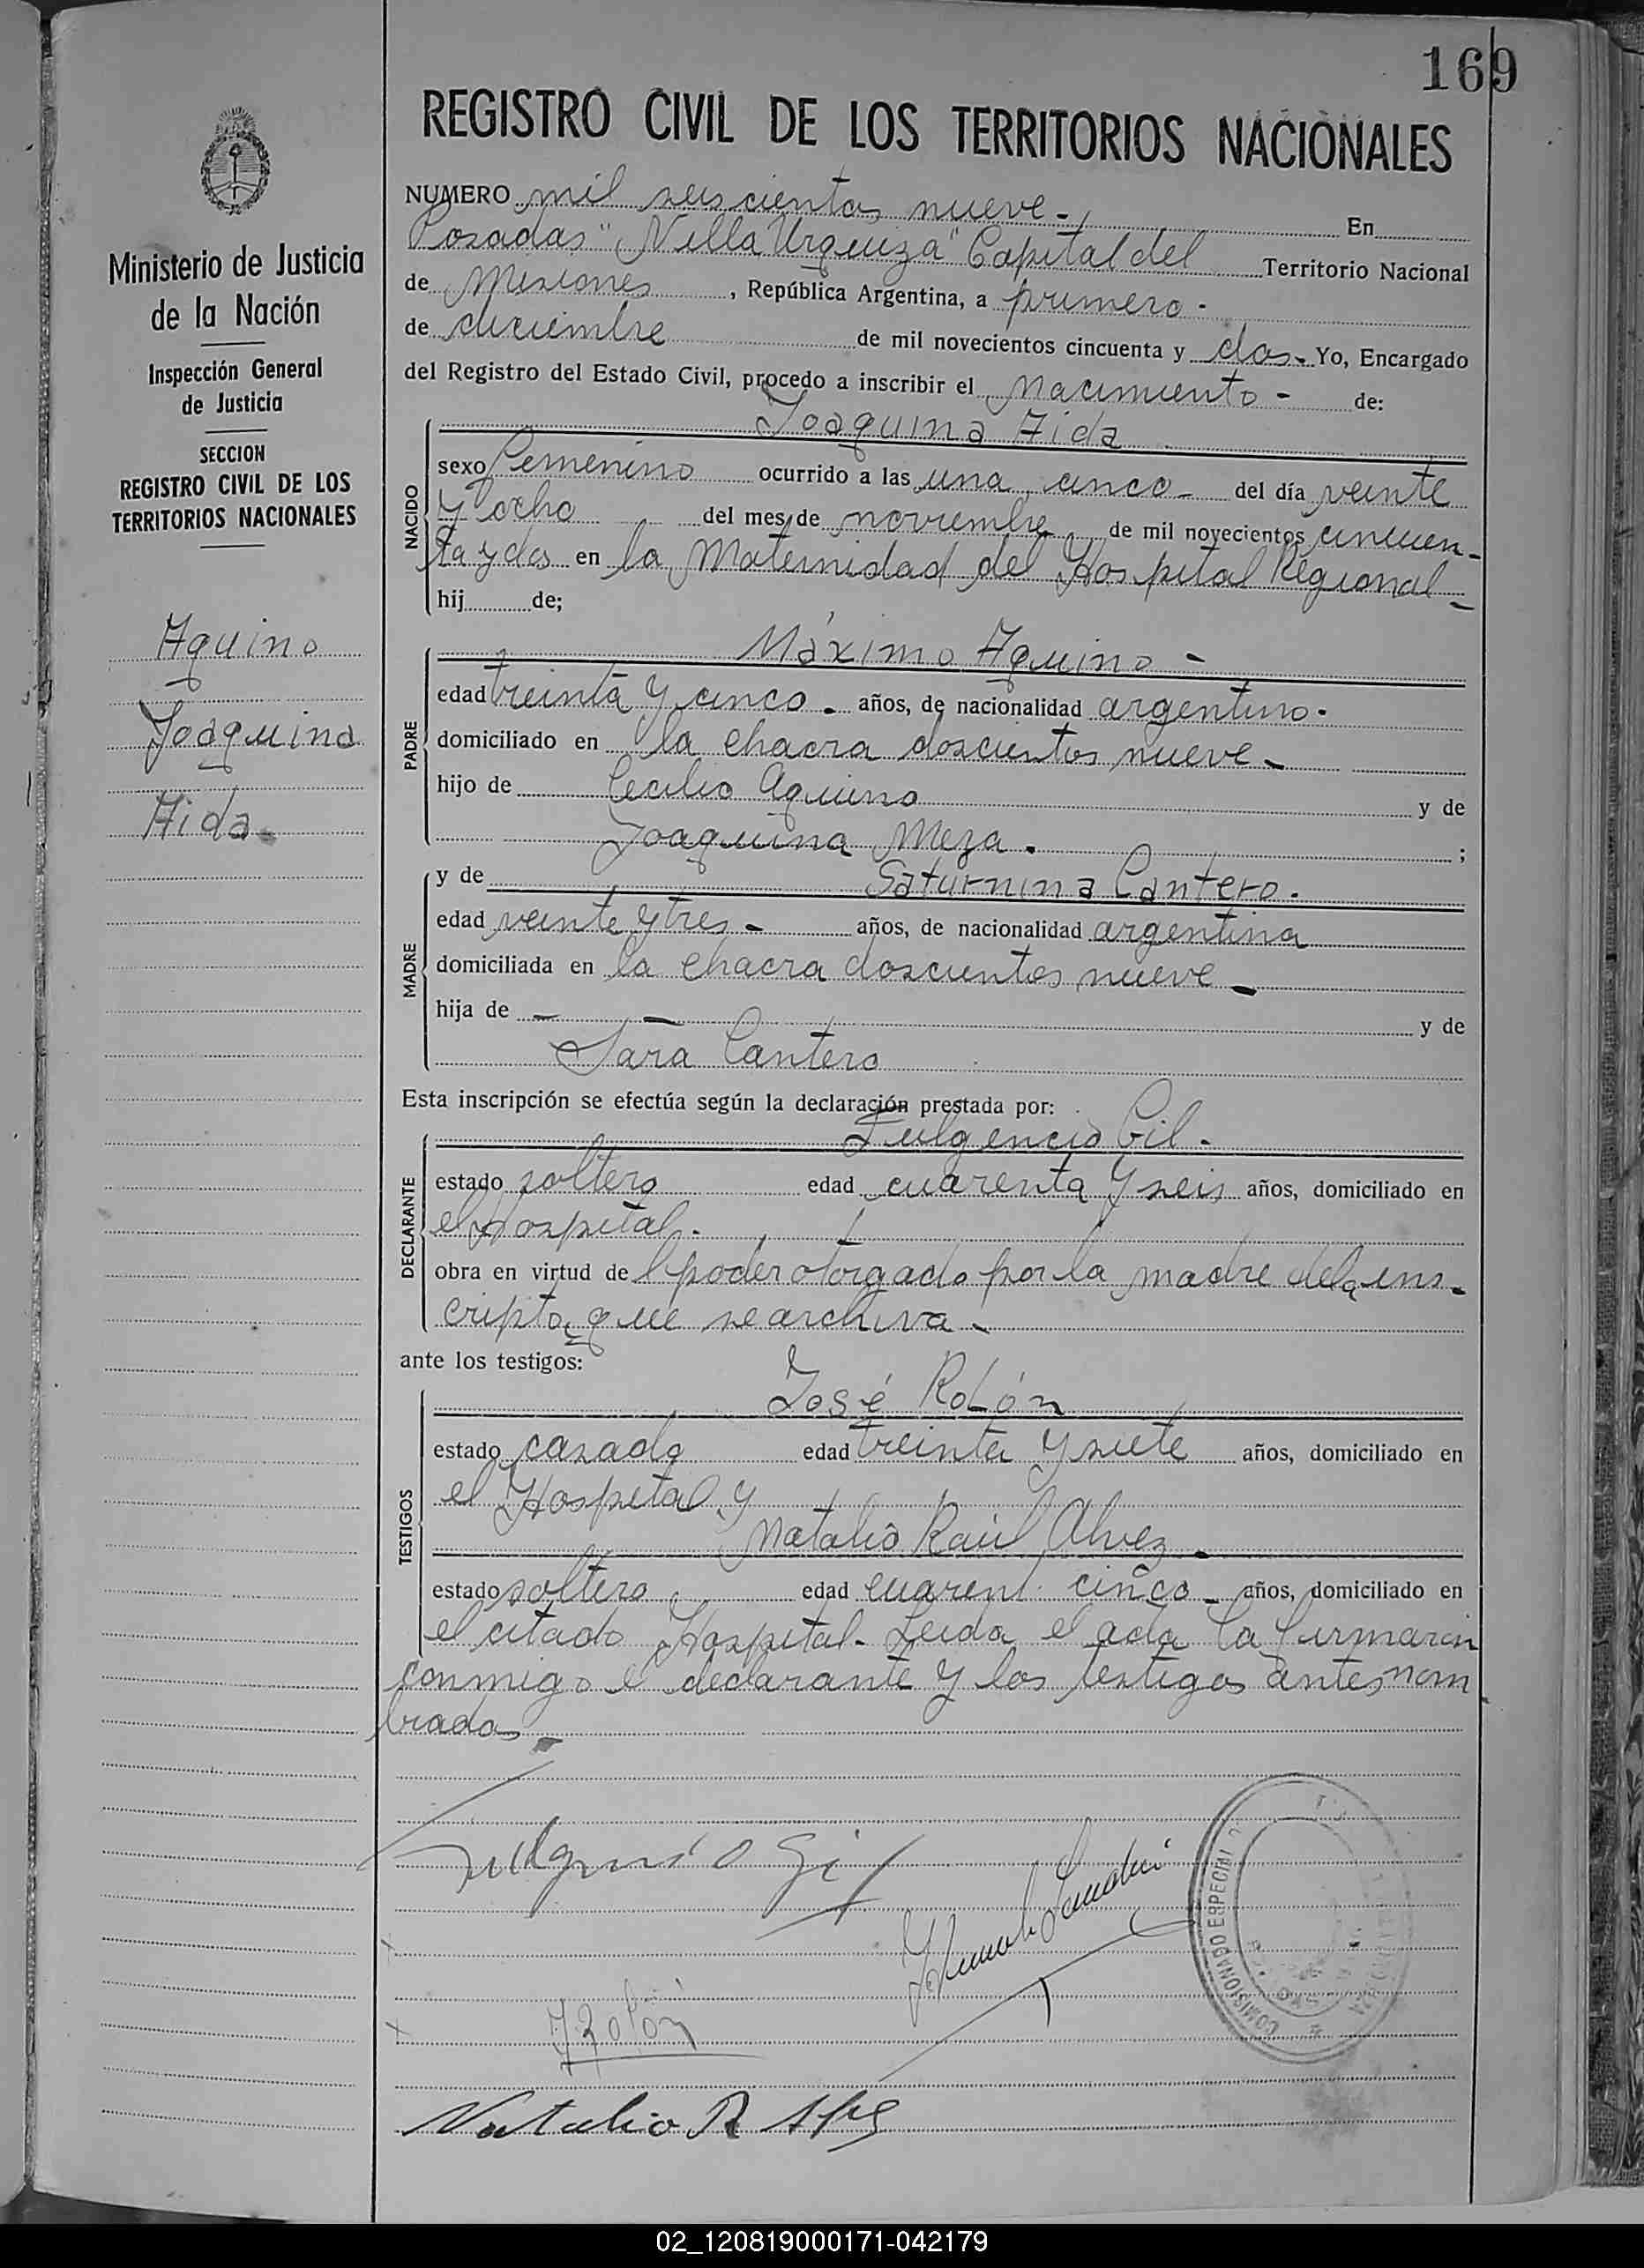 169
REGISTRO CIVIL DE LOS TERRITORIOS NACIONALES
Ministerio de Justicia
de la Nación
Inspección General
de Justicia
SECCION
REGISTRO CIVIL DE LOS
TERRITORIOS NACIONALES
Aquino
Joaquina
Aida
NUMERO mil seiscientos nueve - En
Posadas "Villa Urquiza" Capital del Territorio Nacional
de Misiones, República Argentina, a primero -
de diciembre de mil novecientos cincuenta y dos - Yo, Encargado
del Registro del Estado Civil, procedo a inscribir el nacimiento - de:
Joaquina Aida
NACIDO
sexo femenino ocurrido a las una, cinco - del día veinte
y ocho del mes de noviembre de mil novecientos cincuen-
ta y dos en la Maternidad del Hospital Regional -
hij de;
Máximo Aquino -
PADRE
edad treinta y cinco - años, de nacionalidad argentino -
domiciliado en la chacra doscientos nueve -
hijo de Cecilio Aquino y de
Joaquina Meza. ;
y de Saturnina Cantero.
MADRE
edad veinte y tres - años, de nacionalidad argentina
domiciliada en la chacra doscientos nueve -
hija de - - y de
Sara Cantero
Esta inscripción se efectúa según la declaración prestada por:
Fulgencio Gil -
DECLARANTE
estado soltero edad cuarenta y seis años, domiciliado en
el Hospital -
obra en virtud de l poder otorgado por la madre de la ins-
cripta, que se archiva -
ante los testigos:
José Rolón
TESTIGOS
estado casado edad treinta y siete años, domiciliado en
el Hospital y
Natalio Raúl Alvez -
estado soltero edad cuarent cinco - años, domiciliado en
el citado Hospital - Leida el acta la firmaron
conmigo el declarante y los testigos antes nom
brados -
Fulgencio Gil
COMISIONADO ESPECIAL
J Rolón
Natalio R Alvez
02_120819000171-042179